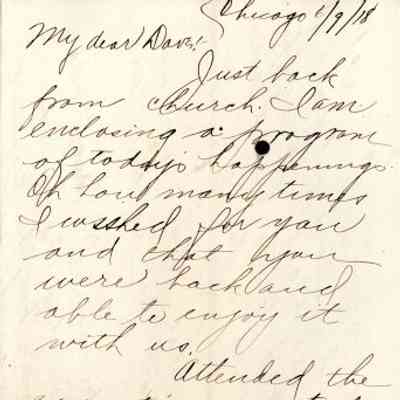 Chicago 6/9/18
My dear Dave!
Just back
from church. I am
enclosing a program
of today's happenings.
Oh how many times
I wished for you
and that you
were back and
able to enjoy it
with us.
Attended the